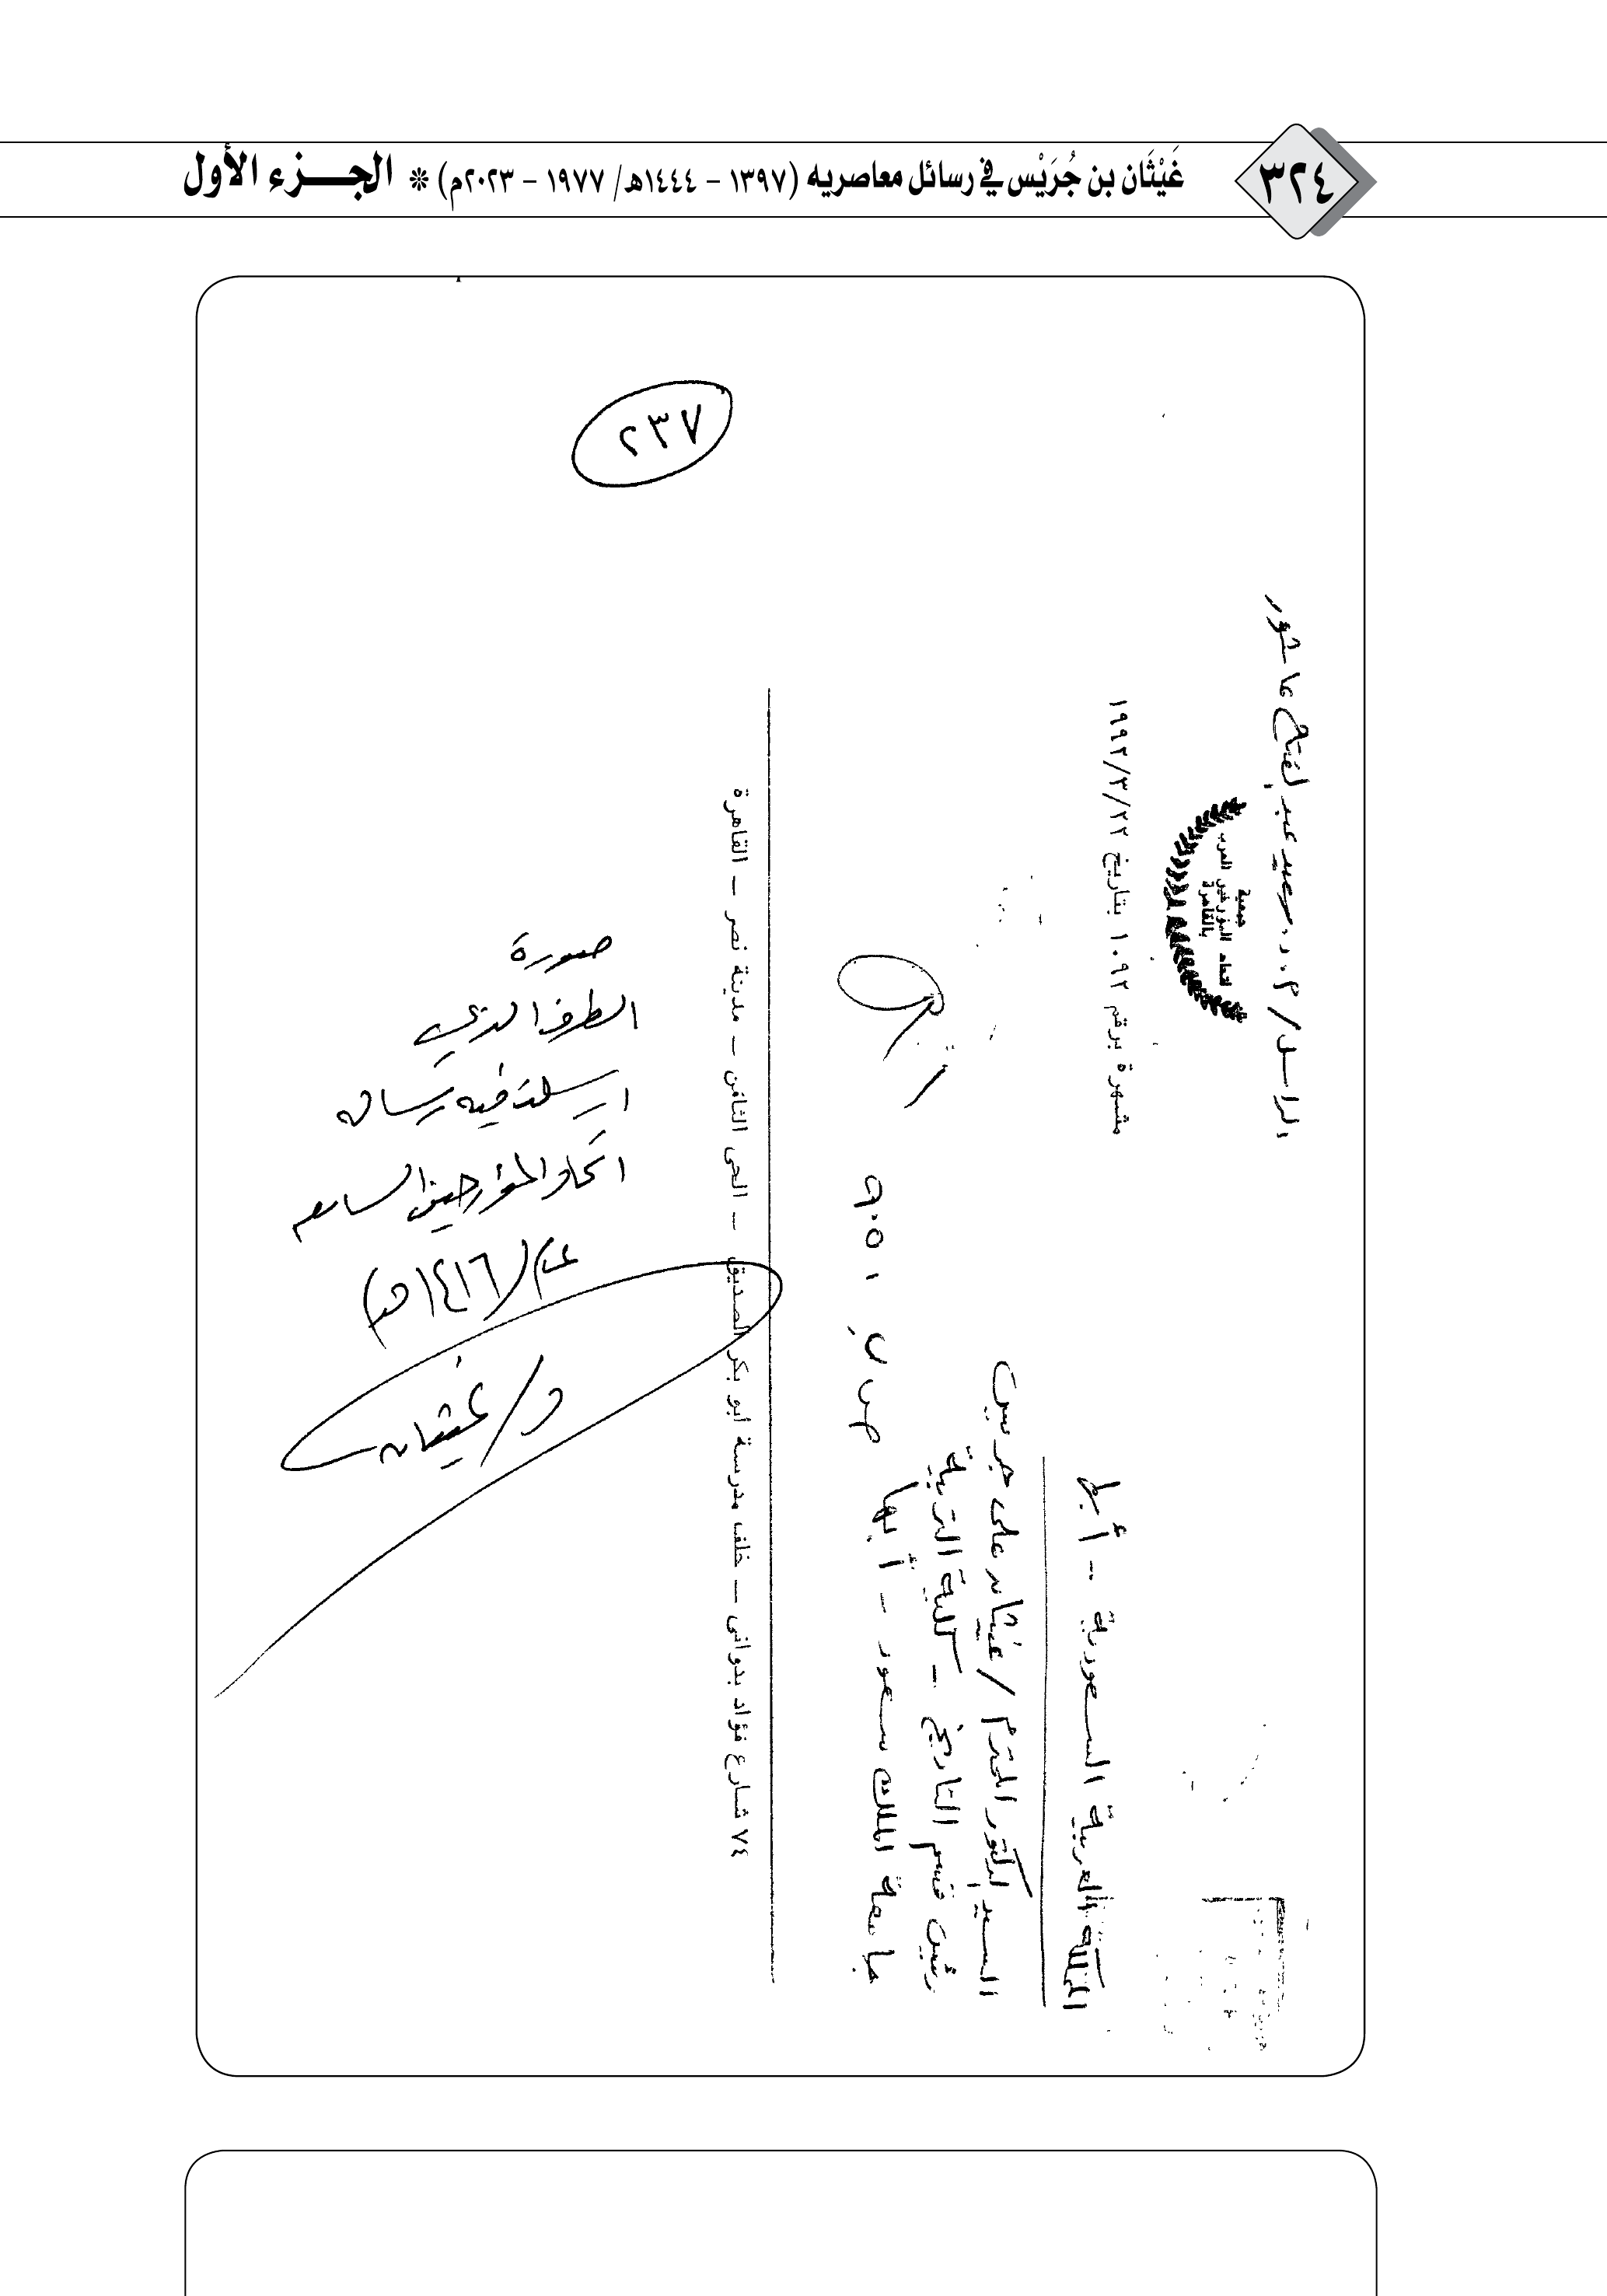 ٣٢٤
غَيْثَان بن جُرَيْس في رسائل معاصريه (١٣٩٧ - ١٤٤٤هـ/ ١٩٧٧ - ٢٠٢٣م) * الجزء الأول
٢٣٧
الراسل / أ.د. سعيد عبد الفتاح عاشور
جمعية
اتحاد المؤرخين العرب
بالقاهرة
مشهرة برقم ١٠٩٢ بتاريخ ١٩٩٢/٣/٢٢
المملكة العربية السعودية - أبها
السيد الدكتور المحترم / غيثان على جريس
رئيس قسم التاريخ - كلية التربية
جامعة الملك سعود - أبها
ص.ب ٩٠٥١
٧٤ شارع فؤاد بدوانى – خلف مدرسة ابو بكر الصديق – الحى الثامن – مدينة نصر – القاهرة
صورة
الظرف الذي
ارسلت فيه رسالة
اتحاد المؤرخين السابقة
عام (١٤١٦هـ)
د/ غيثان